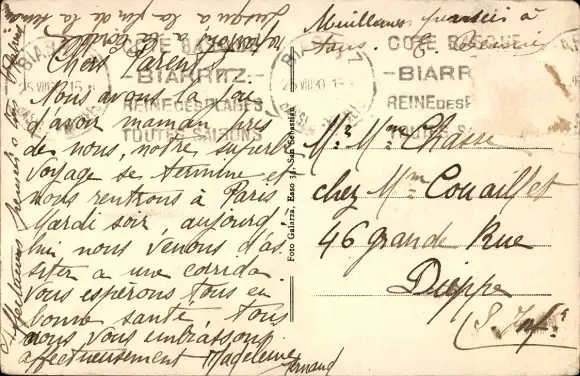 Meilleures pensées à
tous.
jusqu'à la fin de la
à la
BIARRITZ
COTE BASQUE
-BIARRITZ-
REINE DES PLAGES
TOUTES SAISONS
BIARRITZ
COTE BASQUE
-BIARR
REINE DES P
Chers Parents
Nous avons la joie
d'avoir maman près
de nous, notre superbe
voyage se termine et
nous rentrons à Paris
Mardi soir, aujourd,
hui nous venons d'as-
sister a une corrida
Vous espérons tous en
bonne santé, Tous
nous vous embrassons
affectueusement Madeleine
Fernand
Affectueuses pensées
Foto Galarza, Easo San Sebastian
Mr Mme Chasse
chez Mme Couaillet
46 grande Rue
Dieppe
(S. Infre